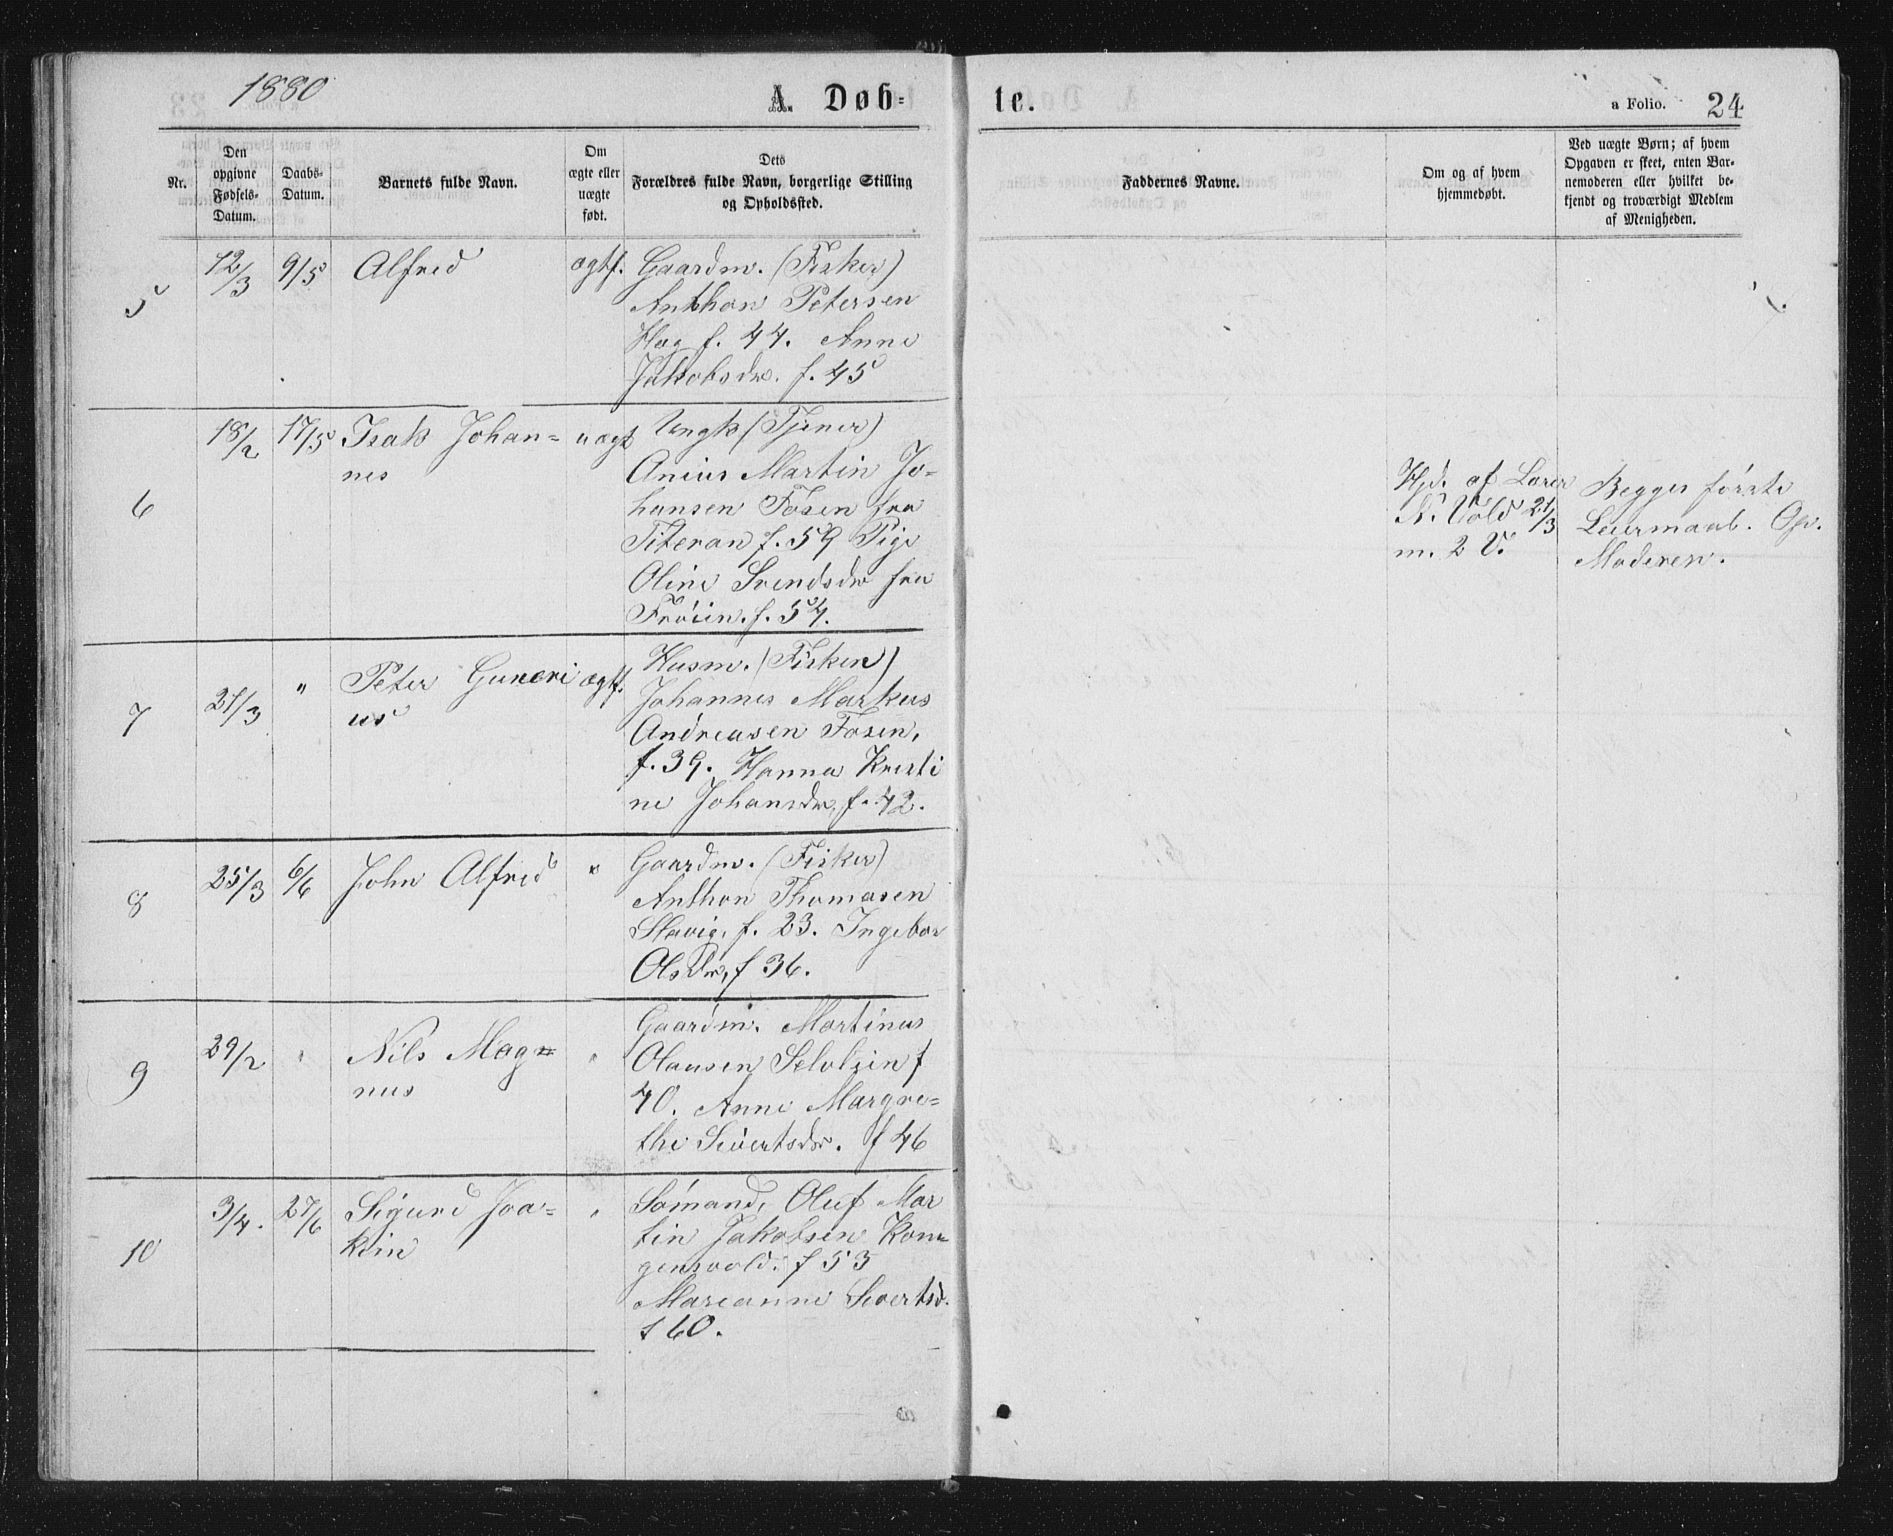 1880
A. Døb=
te.
a Folio. 24
Nr.
Den
opgivne
Fødsels-
Datum.
Daabs-
Datum.
Barnets fulde Navn.
Om
ægte eller
uægte
født.
Dets
Forældres fulde Navn, borgerlige Stilling
og Opholdssted.
Faddernes Navne.
Om og af hvem
hjemmedøbt.
Ved uægte Børn; af hvem
Opgaven er skeet, enten Bar-
nemoderen eller hvilket be-
kjendt og troværdigt Medlem
af Menigheden.
5
12/3
9/5
Alfred
ægtf.
Gaardm. (Fisker)
Anthon Petersen
Hog f. 44. Anne
Jakobsdr. f. 45
6
18/2
17/5
Isak Johan=
nes
uægt
Ungk (Tjener)
Anius Martin Jo-
hansen Fosen fra
Titeran f. 59 Pige
Oline Svendsdr fra
Frøien. f. 54.
Hjd. af Lærer
N. Vold 21/3
m. 2 V.
Begges første
Leiermaal. Op.
Moderen.
7
21/3
"
Peter Guneri
us
ægtf.
Husm. (Fisker)
Johannes Markus
Andreasen Fosen,
f. 39. Hanna Kristi
ne Johansdr. f. 42.
8
25/3
6/6
John Alfred
"
Gaardm. (Fisker)
Anthon Thomasen
Slavig, f. 23. Ingebor
Olsdr, f 36.
9
29/2
"
Nils Mag=
nus
"
Gaardm. Martinus
Olausen f
40. Anne Margre=
the Sivertsdr. f 46
10
3/4.
27/6
Sigurd Joa=
kim
"
Sømand, Oluf Mar
tin Jakobsen Kon=
gensvold. f 53
Marianne Sivertsd.
f 60.